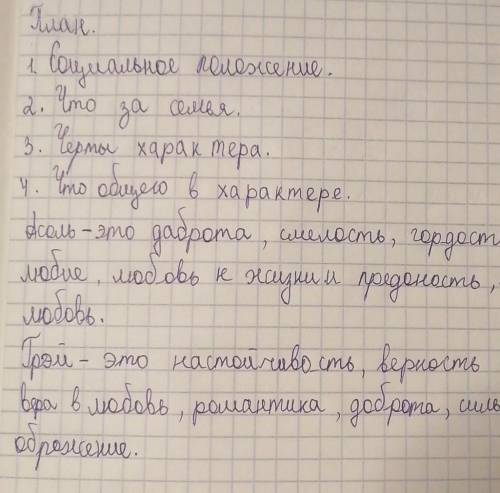 План.
1. Социальное положение.
2. Что за семья.
3. Черты характера.
4. Что общего в характере.
Асоль - это даброта, смелость, гордост
любие, любовь к жизни и преданость,
любовь.
Грэй - это настойчивость, верность
вера в любовь, романтика, доброта, силь
ображение.